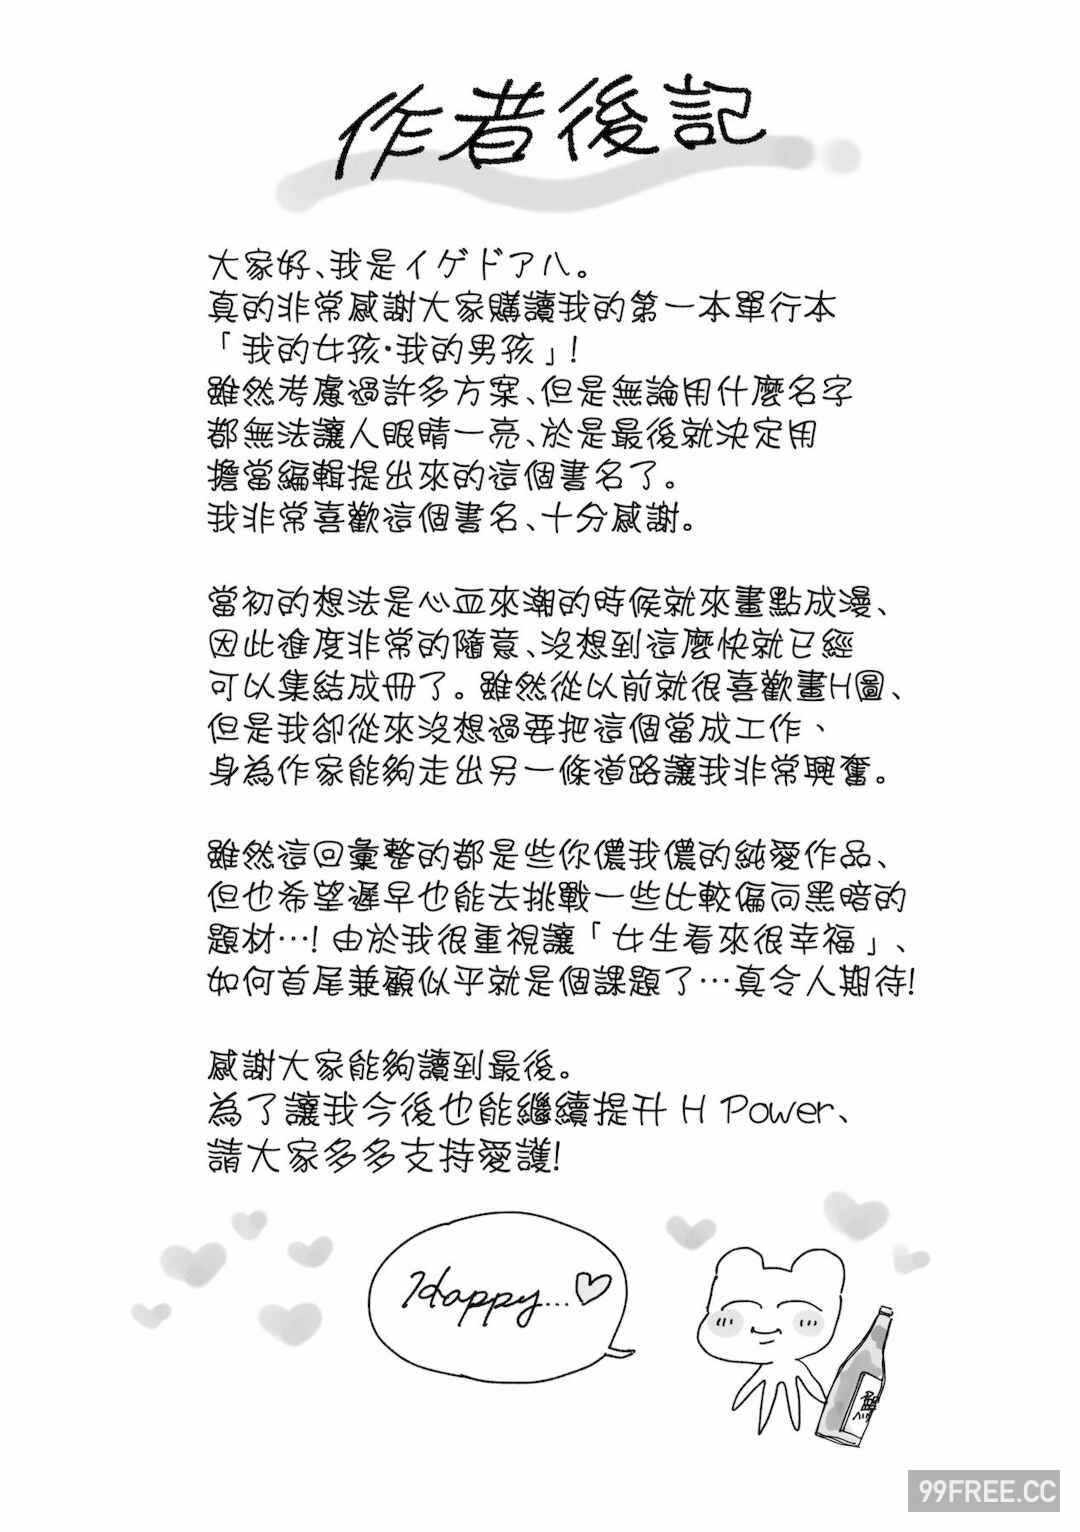 作者後記
大家好、我是イゲドアハ。
真的非常感謝大家購讀我的第一本單行本
「我的女孩·我的男孩」!
雖然考慮過許多方案、但是無論用什麼名字
都無法讓人眼睛一亮、於是最後就決定用
擔當編輯提出來的這個書名了。
我非常喜歡這個書名、十分感謝。
當初的想法是心血來潮的時候就來畫點成漫、
因此進度非常的隨意、沒想到這麼快就已經
可以集結成冊了。雖然從以前就很喜歡畫H圖、
但是我卻從來沒想過要把這個當成工作、
身為作家能夠走出另一條道路讓我非常興奮。
雖然這回彙整的都是些你儂我儂的純愛作品、
但也希望遲早也能去挑戰一些比較偏向黑暗的
題材…! 由於我很重視讓「女生看來很幸福」、
如何首尾兼顧似乎就是個課題了…真令人期待!
感謝大家能夠讀到最後。
為了讓我今後也能繼續提升 H Power、
請大家多多支持愛護!
Happy...♡
99FREE.CC